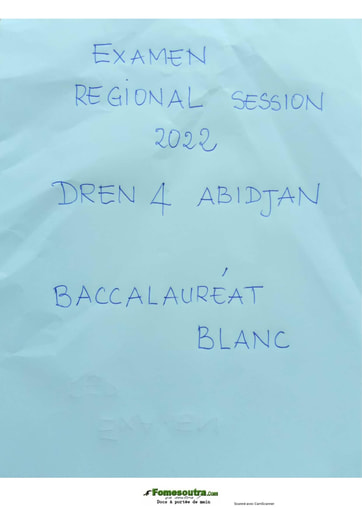 EXAMEN
REGIONAL SESSION
2022
DREN 4 ABIDJAN
BACCALAURÉAT
BLANC
Fomesoutra.com
Docs à portée de main
Scanné avec CamScanner